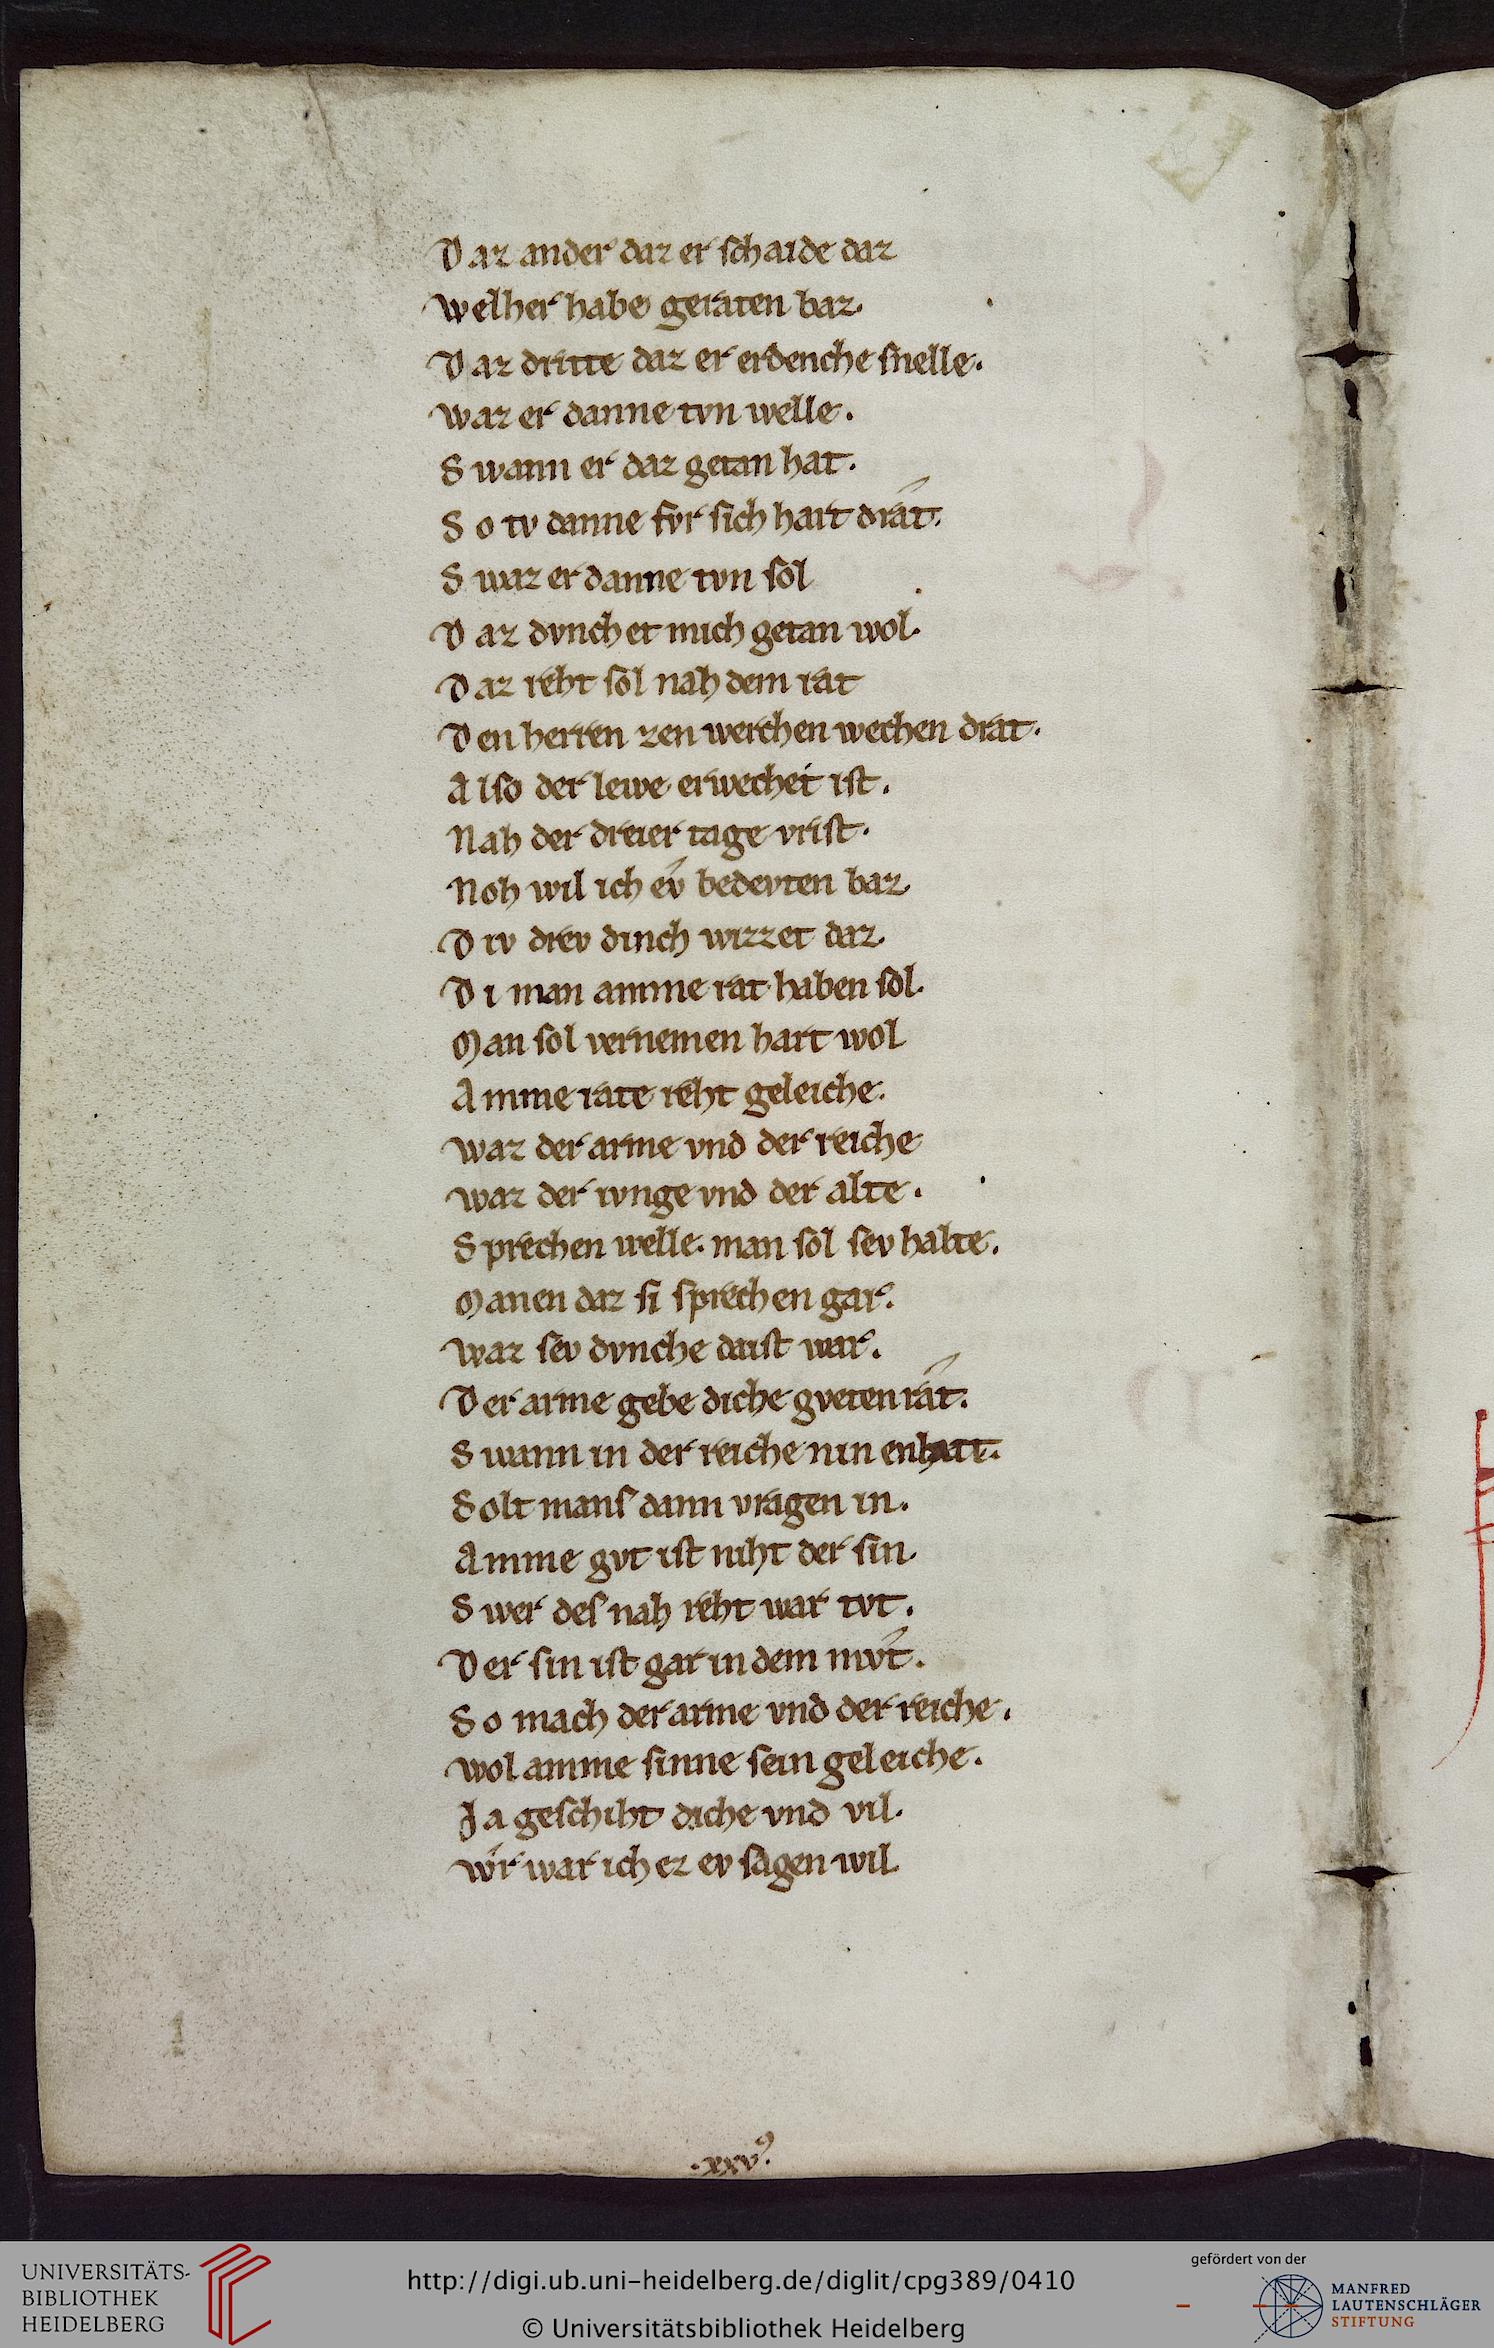 Daz ander daz er schaide daz
Welher habe geraten baz.
Daz dritte daz er erdenche snelle.
Waz er danne tvn welle.
Swann er daz getan hat.
So tv danne fvr sich hart drat.
Swaz er danne tvn sol
Daz dvnchet mich getan wol.
Daz reht sol nah dem rat
Den herren zen werchen wechen drat.
Also der lewe erwechet ist.
Nah der dreier tage vrist.
Noh wil ich ev bedevten baz
Div drev dinch wizzet daz.
Di man amme rat haben sol.
Man sol vernemen hart wol
Amme rate reht geleiche.
Waz der arme vnd der reiche
Waz der ivnge vnd der alte.
Sprechen welle. man sol sev halte.
Manen daz si sprechen gar.
Waz sev dvnche daist war.
Der arme gebe diche gveten rat.
Swann in der reiche nin enhatt.
Solt mans dann vragen in.
Amme gvt ist niht der sin.
Swer des nah reht war tvt.
Der sin ist gar in dem mvt.
So mach der arme vnd der reiche.
Wol amme sinne sein geleiche.
Ja geschiht diche vnd vil.
Wr war ich ez ev sagen wil.
.xxv⁹.
UNIVERSITÄTS-
BIBLIOTHEK
HEIDELBERG
http://digi.ub.uni-heidelberg.de/diglit/cpg389/0410
© Universitätsbibliothek Heidelberg
gefördert von der
MANFRED
LAUTENSCHLÄGER
STIFTUNG